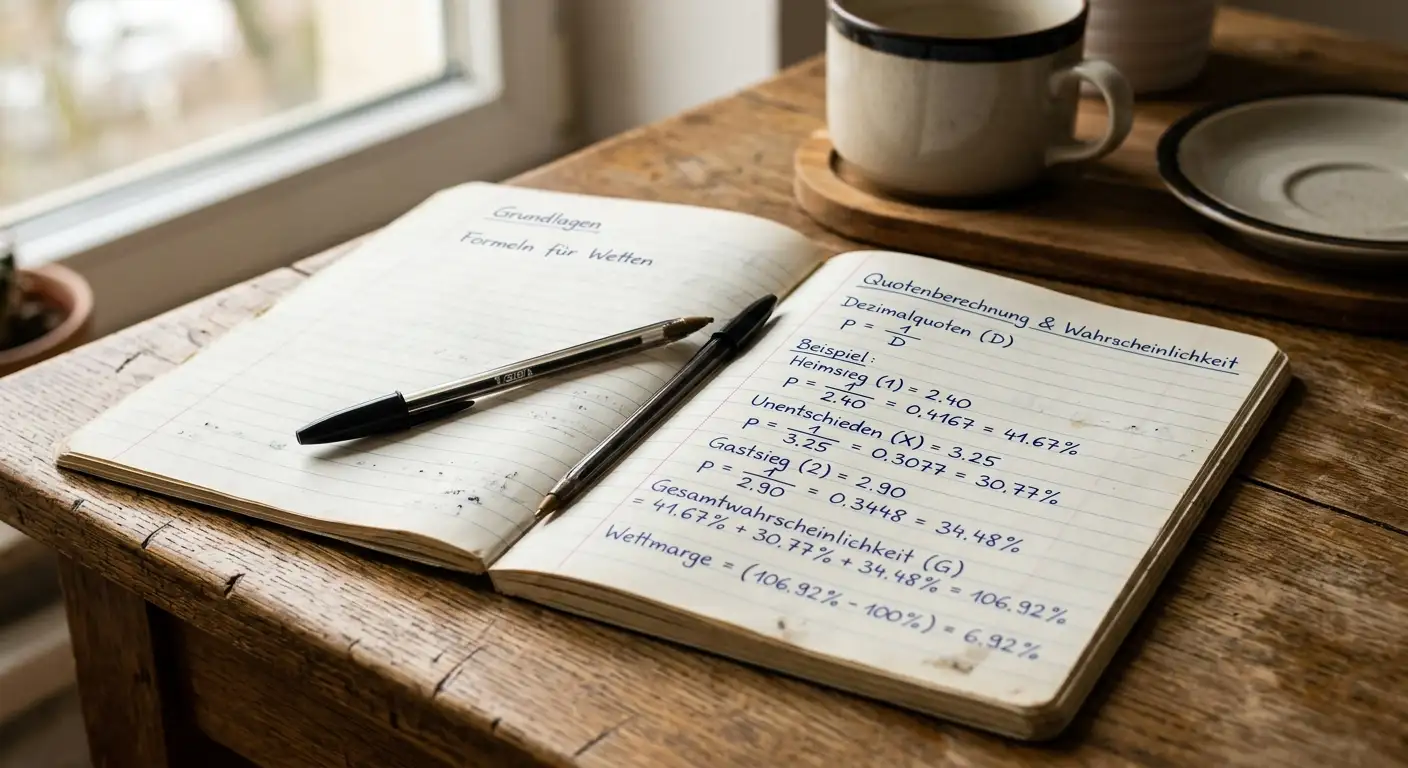 Grundlagen
Formeln für Wetten
Quotenberechnung & Wahrscheinlichkeit
Dezimalquoten (D)
P = 1/D
Beispiel:
Heimsieg (1) = 2.40
P = 1/2.40 = 0.4167 = 41.67%
Unentschieden (X) = 3.25
P = 1/3.25 = 0.3077 = 30.77%
Gastsieg (2) = 2.90
P = 1/2.90 = 0.3448 = 34.48%
Gesamtwahrscheinlichkeit (G)
= 41.67% + 30.77% + 34.48% = 106.92%
Wettmarge = (106.92% - 100%) = 6.92%